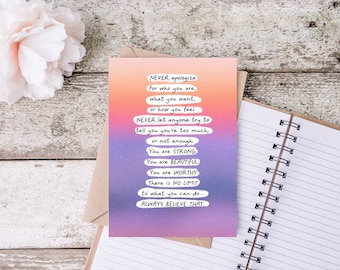 NEVER apologise
for who you are,
what you want,
or how you feel.
NEVER let anyone try to
tell you you're too much,
or not enough.
You are STRONG.
You are BEAUTIFUL.
You are WORTHY.
There is NO LIMIT
to what you can do...
ALWAYS BELIEVE THAT.